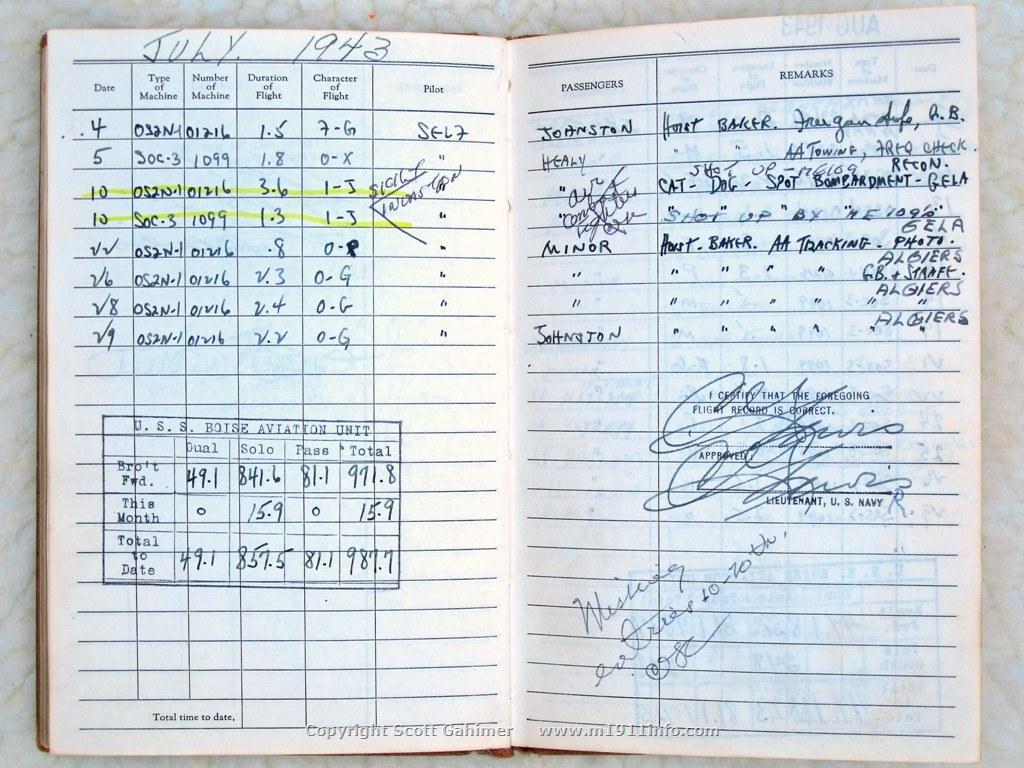 JULY. 1943
Date Type of Machine Number of Machine Duration of Flight Character of Flight Pilot
4 OS2N-1 01216 1.5 7-G SELF
5 SOC-3 1099 1.8 O-X "
10 OS2N-1 01216 3.6 1-J "
SICILY INVASION
10 SOC-3 1099 1.3 1-J "
22 OS2N-1 01216 .8 O-P "
26 OS2N-1 01216 2.3 O-G "
28 OS2N-1 01216 2.4 O-G "
29 OS2N-1 01216 2.2 O-G "
U. S. S. BOISE AVIATION UNIT
Dual Solo Pass Total
Bro't Fwd. 49.1 841.6 81.1 971.8
This Month 0 15.9 0 15.9
Total to Date 49.1 857.5 81.1 987.7
Total time to date,
AUG 1943
PASSENGERS REMARKS
JOHNSTON HOIST BAKER.
HEALY " " AA TOWING, FREQ CHECK.
SHOT UP - ME109 RECON.
" CAT - DOG - SPOT BOMBARDMENT - GELA
air combat
" "SHOT UP" BY "ME109s" GELA
MINOR HOIST. BAKER. AA TRACKING. PHOTO. ALGIERS
" " " " " GB. & STRAFE. ALGIERS
" " " " " " " ALGIERS
JOHNSTON " " " " " "
I CERTIFY THAT THE FOREGOING
FLIGHT RECORD IS CORRECT.
APPROVED:
LIEUTENANT, U. S. NAVY R.
Missing
entries 10-10th.
Copyright Scott Gahimer www.m1911info.com